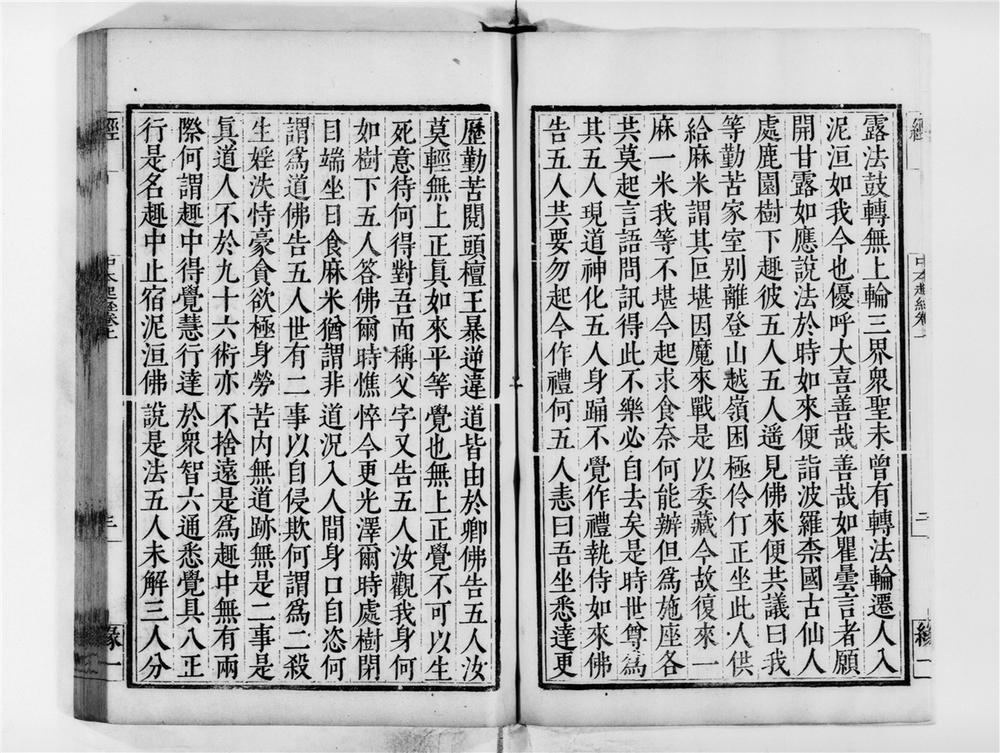 露法鼓轉無上輪三界衆聖未曾有轉法輪遷人入
泥洹如我今也優呼大喜善哉善哉如瞿曇言者願
開甘露如應說法於時如來便詣波羅柰國古仙人
處鹿園樹下趣彼五人五人遥見佛來便共議曰我
等勤苦家室别離登山越嶺困極伶仃正坐此人供
給麻米謂其叵堪因魔來戰是以委藏今故復來一
麻一米我等不堪今起求食奈何能辦但爲施座各
共莫起言語問訊得此不樂必自去矣是時世尊爲
其五人現道神化五人身踊不覺作禮執侍如來佛
告五人共要勿起今作禮何五人恚曰吾坐悉達更
歷勤苦閱頭檀王暴逆違道皆由於卿佛告五人汝
莫輕無上正真如來平等覺也無上正覺不可以生
死意待何得對吾而稱父字又告五人汝觀我身何
如樹下五人答佛爾時憔悴今更光澤爾時處樹閉
目端坐日食麻米猶謂非道況入人間身口自恣何
謂爲道佛告五人世有二事以自侵欺何謂爲二殺
生婬泆恃豪貪欲極身勞苦内無道跡無是二事是
真道人不於九十六術亦不捨遠是爲趣中無有兩
際何謂趣中得覺慧行達於衆智六通悉覺具八正
行是名趣中止宿泥洹佛說是法五人未解三人分
經
中本起經卷上
三
緣一
經
中本起經卷上
二
緣一